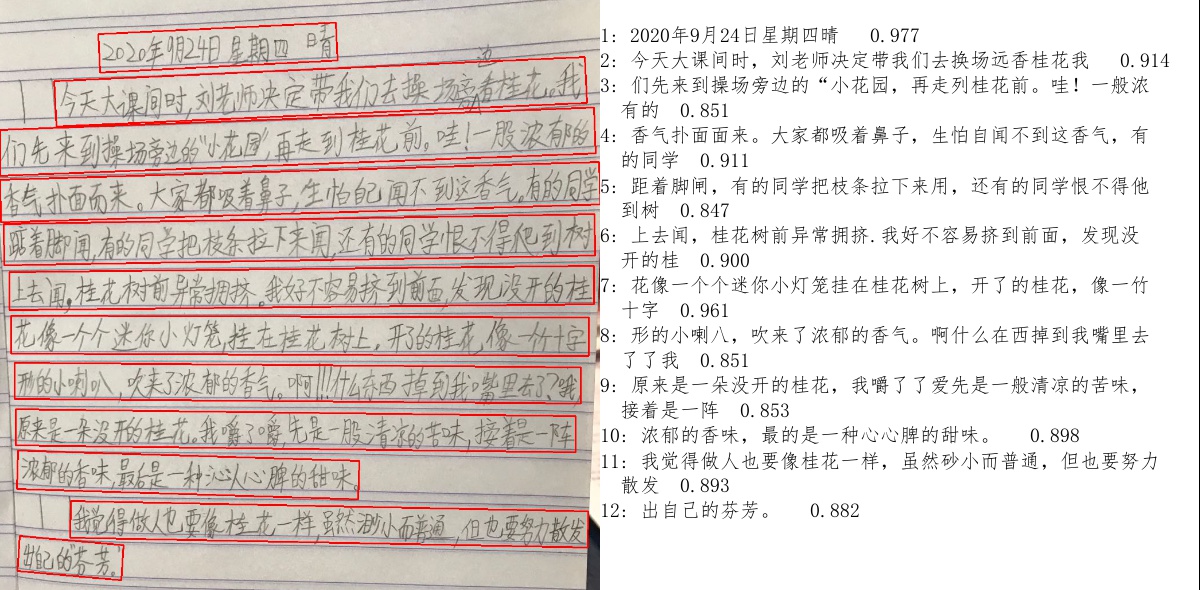 2020年9月24日 星期四 晴
边
今天大课间时,刘老师决定带我们去操场旁香桂花。我
们先来到操场旁边的"小花园",再走到桂花前。哇!一股浓郁的
香气扑面而来。大家都吸着鼻子,生怕自己闻不到这香气。有的同学
踮着脚闻,有的同学把枝条拉下来闻,还有的同学恨不得爬到树
上去闻。桂花树前异常拥挤。我好不容易挤到前面,发现没开的桂
花像一个个迷你小灯笼,挂在桂花树上,开了的桂花,像一竹十字
形的小喇叭,吹来了浓郁的香气。啊!!!什么东西掉到我嘴里去了?哦
原来是一朵没开的桂花。我嚼了嚼,先是一股清凉的苦味,接着是一阵
浓郁的香味,最后是一种沁人心脾的甜味。
我觉得做人也要像桂花一样,虽然渺小而普通,但也要努力散发
出自己的"芬芳。"
1: 2020年9月24日星期四晴 0.977
2: 今天大课间时,刘老师决定带我们去换场远香桂花我 0.914
3: 们先来到操场旁边的“小花园,再走列桂花前。哇!一般浓
有的 0.851
4: 香气扑面面来。大家都吸着鼻子,生怕自闻不到这香气,有
的同学 0.911
5: 距着脚闸,有的同学把枝条拉下来用,还有的同学恨不得他
到树 0.847
6: 上去闻,桂花树前异常拥挤.我好不容易挤到前面,发现没
开的桂 0.900
7: 花像一个个迷你小灯笼挂在桂花树上,开了的桂花,像一竹
十字 0.961
8: 形的小喇八,吹来了浓郁的香气。啊什么在西掉到我嘴里去
了了我 0.851
9: 原来是一朵没开的桂花,我嚼了了爱先是一般清凉的苦味,
接着是一阵 0.853
10: 浓郁的香味,最的是一种心心脾的甜味。 0.898
11: 我觉得做人也要像桂花一样,虽然砂小而普通,但也要努力
散发 0.893
12: 出自己的芬芳。 0.882